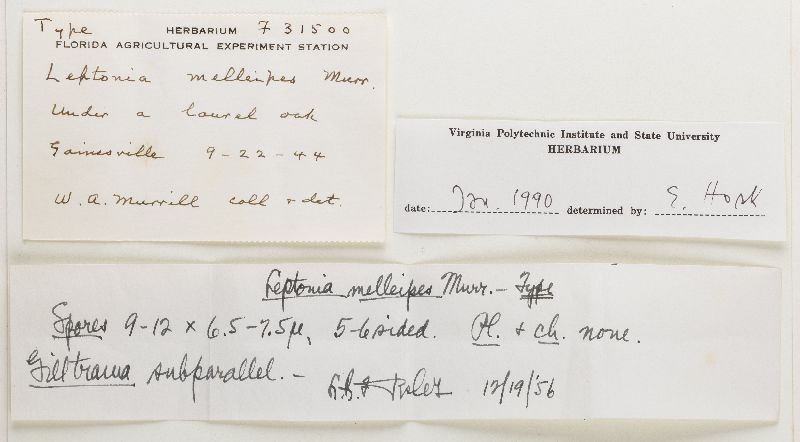 Type HERBARIUM F 31500
FLORIDA AGRICULTURAL EXPERIMENT STATION
Leptonia melleipes Murr.
Under a laurel oak
Gainesville 9-22-44
W. A. Murrill coll & det.
Virginia Polytechnic Institute and State University
HERBARIUM
date: Jan. 1990 determined by: E. Horak
Leptonia melleipes Murr. - Type
Spores 9-12 x 6.5-7.5µ, 5-6 sided. Pl. & ch. none.
Gill trama subparallel. -
12/19/56